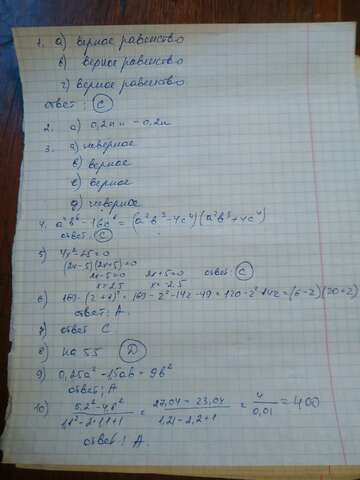 1. а) верное равенство
в) верное равенство
г) верное равенство
ответ: C
2. 0,2a и -0,2a
3. а) неверное
в) верное
верное
неверное
4. a⁴b⁶ - 16c⁸ = (a²b³ - 4c⁴)(a²b³ + 4c⁴)
ответ: C
5) 4x² - 25 = 0
(2x-5)(2x+5)=0
2x-5=0 2x+5=0 ответ C
x=2,5 x=-2,5
6) 169 - (z+7)² = 169 - z² - 14z - 49 = 120 - z² - 14z = (6-z)(20+z)
ответ: A.
7) ответ C
8) на 55 D
9) 0,25a² - 15ab + 9b²
ответ: A
10) 5,2² - 4,8² / 1,1² - 2·1,1+1 = 27,04 - 23,04 / 1,21 - 2,2+1 = 4 / 0,01 = 400
ответ: A.